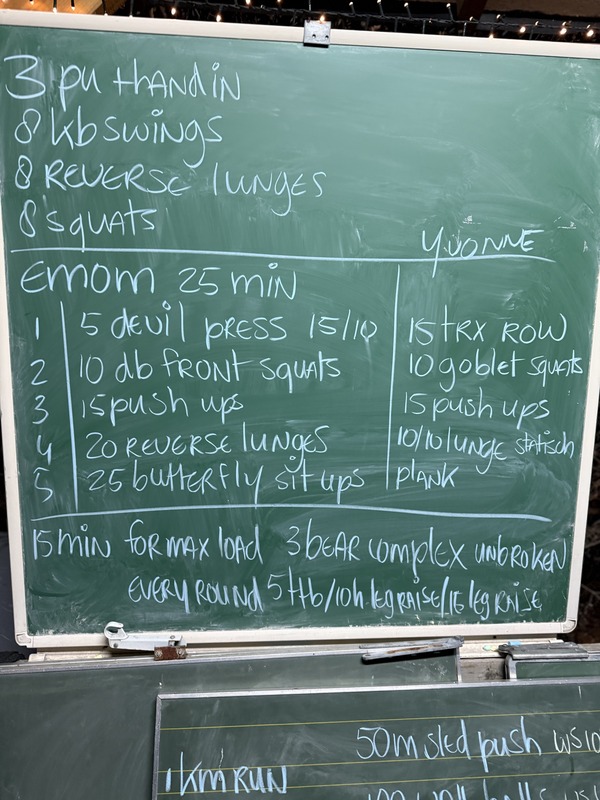 3 pu + handin
8 kb swings
8 REVERSE lunges
8 squats
YVONNE
EMOM 25 min
1 5 devil press 15/10 15 TRX ROW
2 10 db front squats 10 goblet squats
3 15 push ups 15 push ups
4 20 REVERSE lunges 10/10 lunge statisch
5 25 butterfly sit ups plank
15 min for max load 3 bear complex unbroken
EVERY ROUND 5 ttb/10 h.legraise/15 leg raise
50m sled push
1km RUN